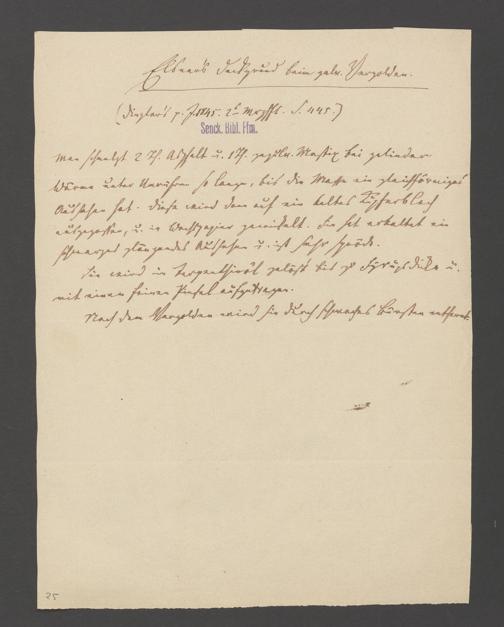 Elsners Deckgrund beim galv. Vergolden.
(Dingler's p. J. 1845. 2s Maihft. S. 445.)
Senck. Bibl. Ffm.
Man schmelzt 2 Th. Asphalt u. 1 Th. Mastix bei gelinder
Wärme unter Umrühren so lange, bis die Masse ein gleichförmiges
Aussehen hat. Diese wird dann auf ein kaltes Kupferblech
ausgegossen, u. in Wachspapier gewickelt. Sie hat erkaltet ein
schwarzes glänzendes Aussehen u. ist sehr spröde.
Sie wird in Terpenthinöl gelöst bis zur Syrupsdicke u.
mit einem feinen Pinsel aufgetragen.
Nach dem Vergolden wird sie durch schwaches Bürsten entfernt.
25